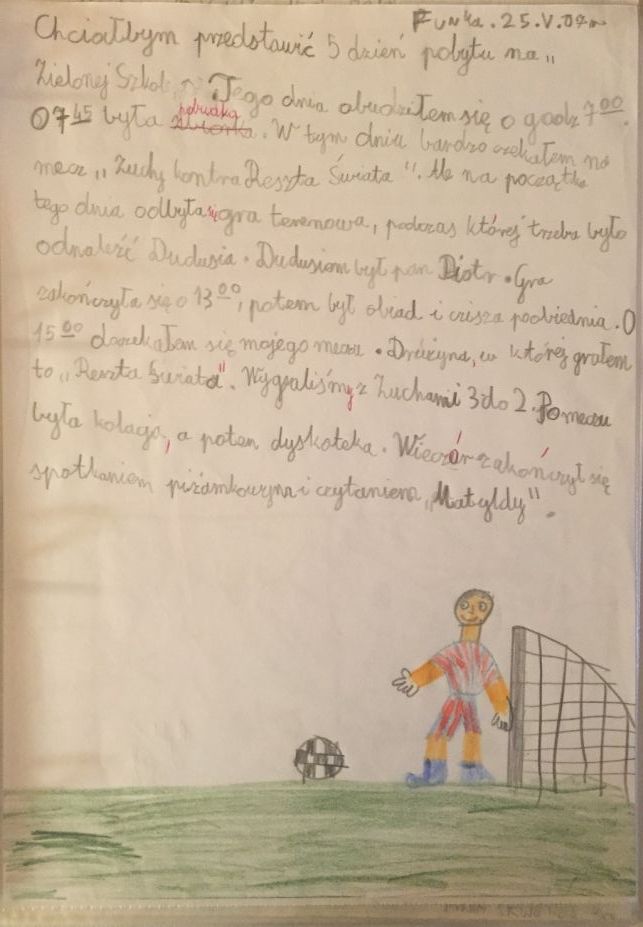 Funka. 25.V.07r
Chciałbym przedstawić 5 dzień pobytu na „
Zielonej Szkole". Tego dnia obudziłem się o godz 7⁰⁰.
07⁴⁵ była pobudka zbiórka. W tym dniu bardzo czekałem na
mecz „Zuchy kontra Reszta Świata". Ale na początku
tego dnia odbyła się gra terenowa, podczas której trzeba było
odnaleźć Dudusia. Dudusiom był pan Piotr. Gra
zakończyła się o 13⁰⁰, potem był obiad i cisza pobiednia. O
15⁰⁰ doczekałem się mojego meczu. Drużyna, w której grałem
to „Reszta Świata". Wygraliśmy z Zuchami 3 do 2. Po meczu
była kolacja, a potem dyskoteka. Wieczór zakończył się
spotkaniem piżamkowym i czytaniem „Matyldy".